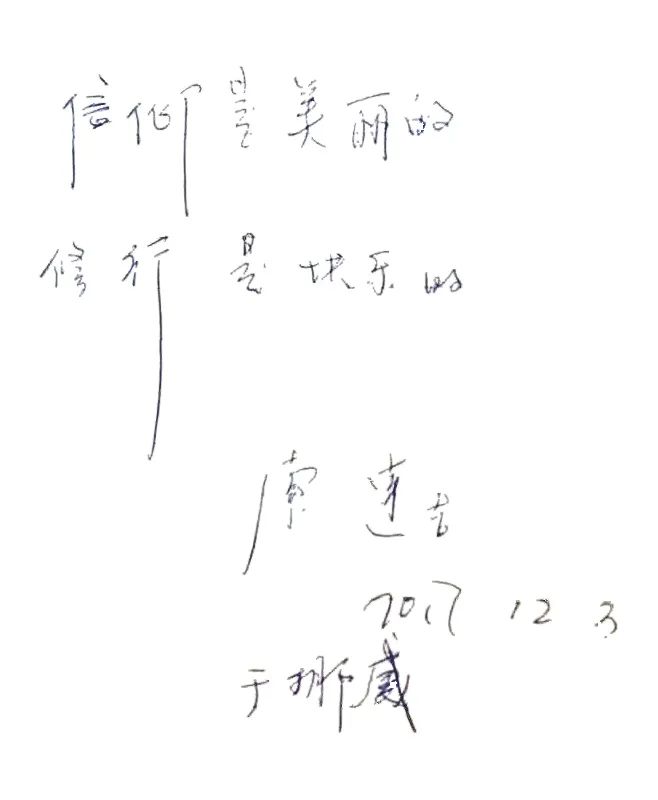 信仰是美丽的
修行是快乐的
索达吉
2017 12 3
于挪威